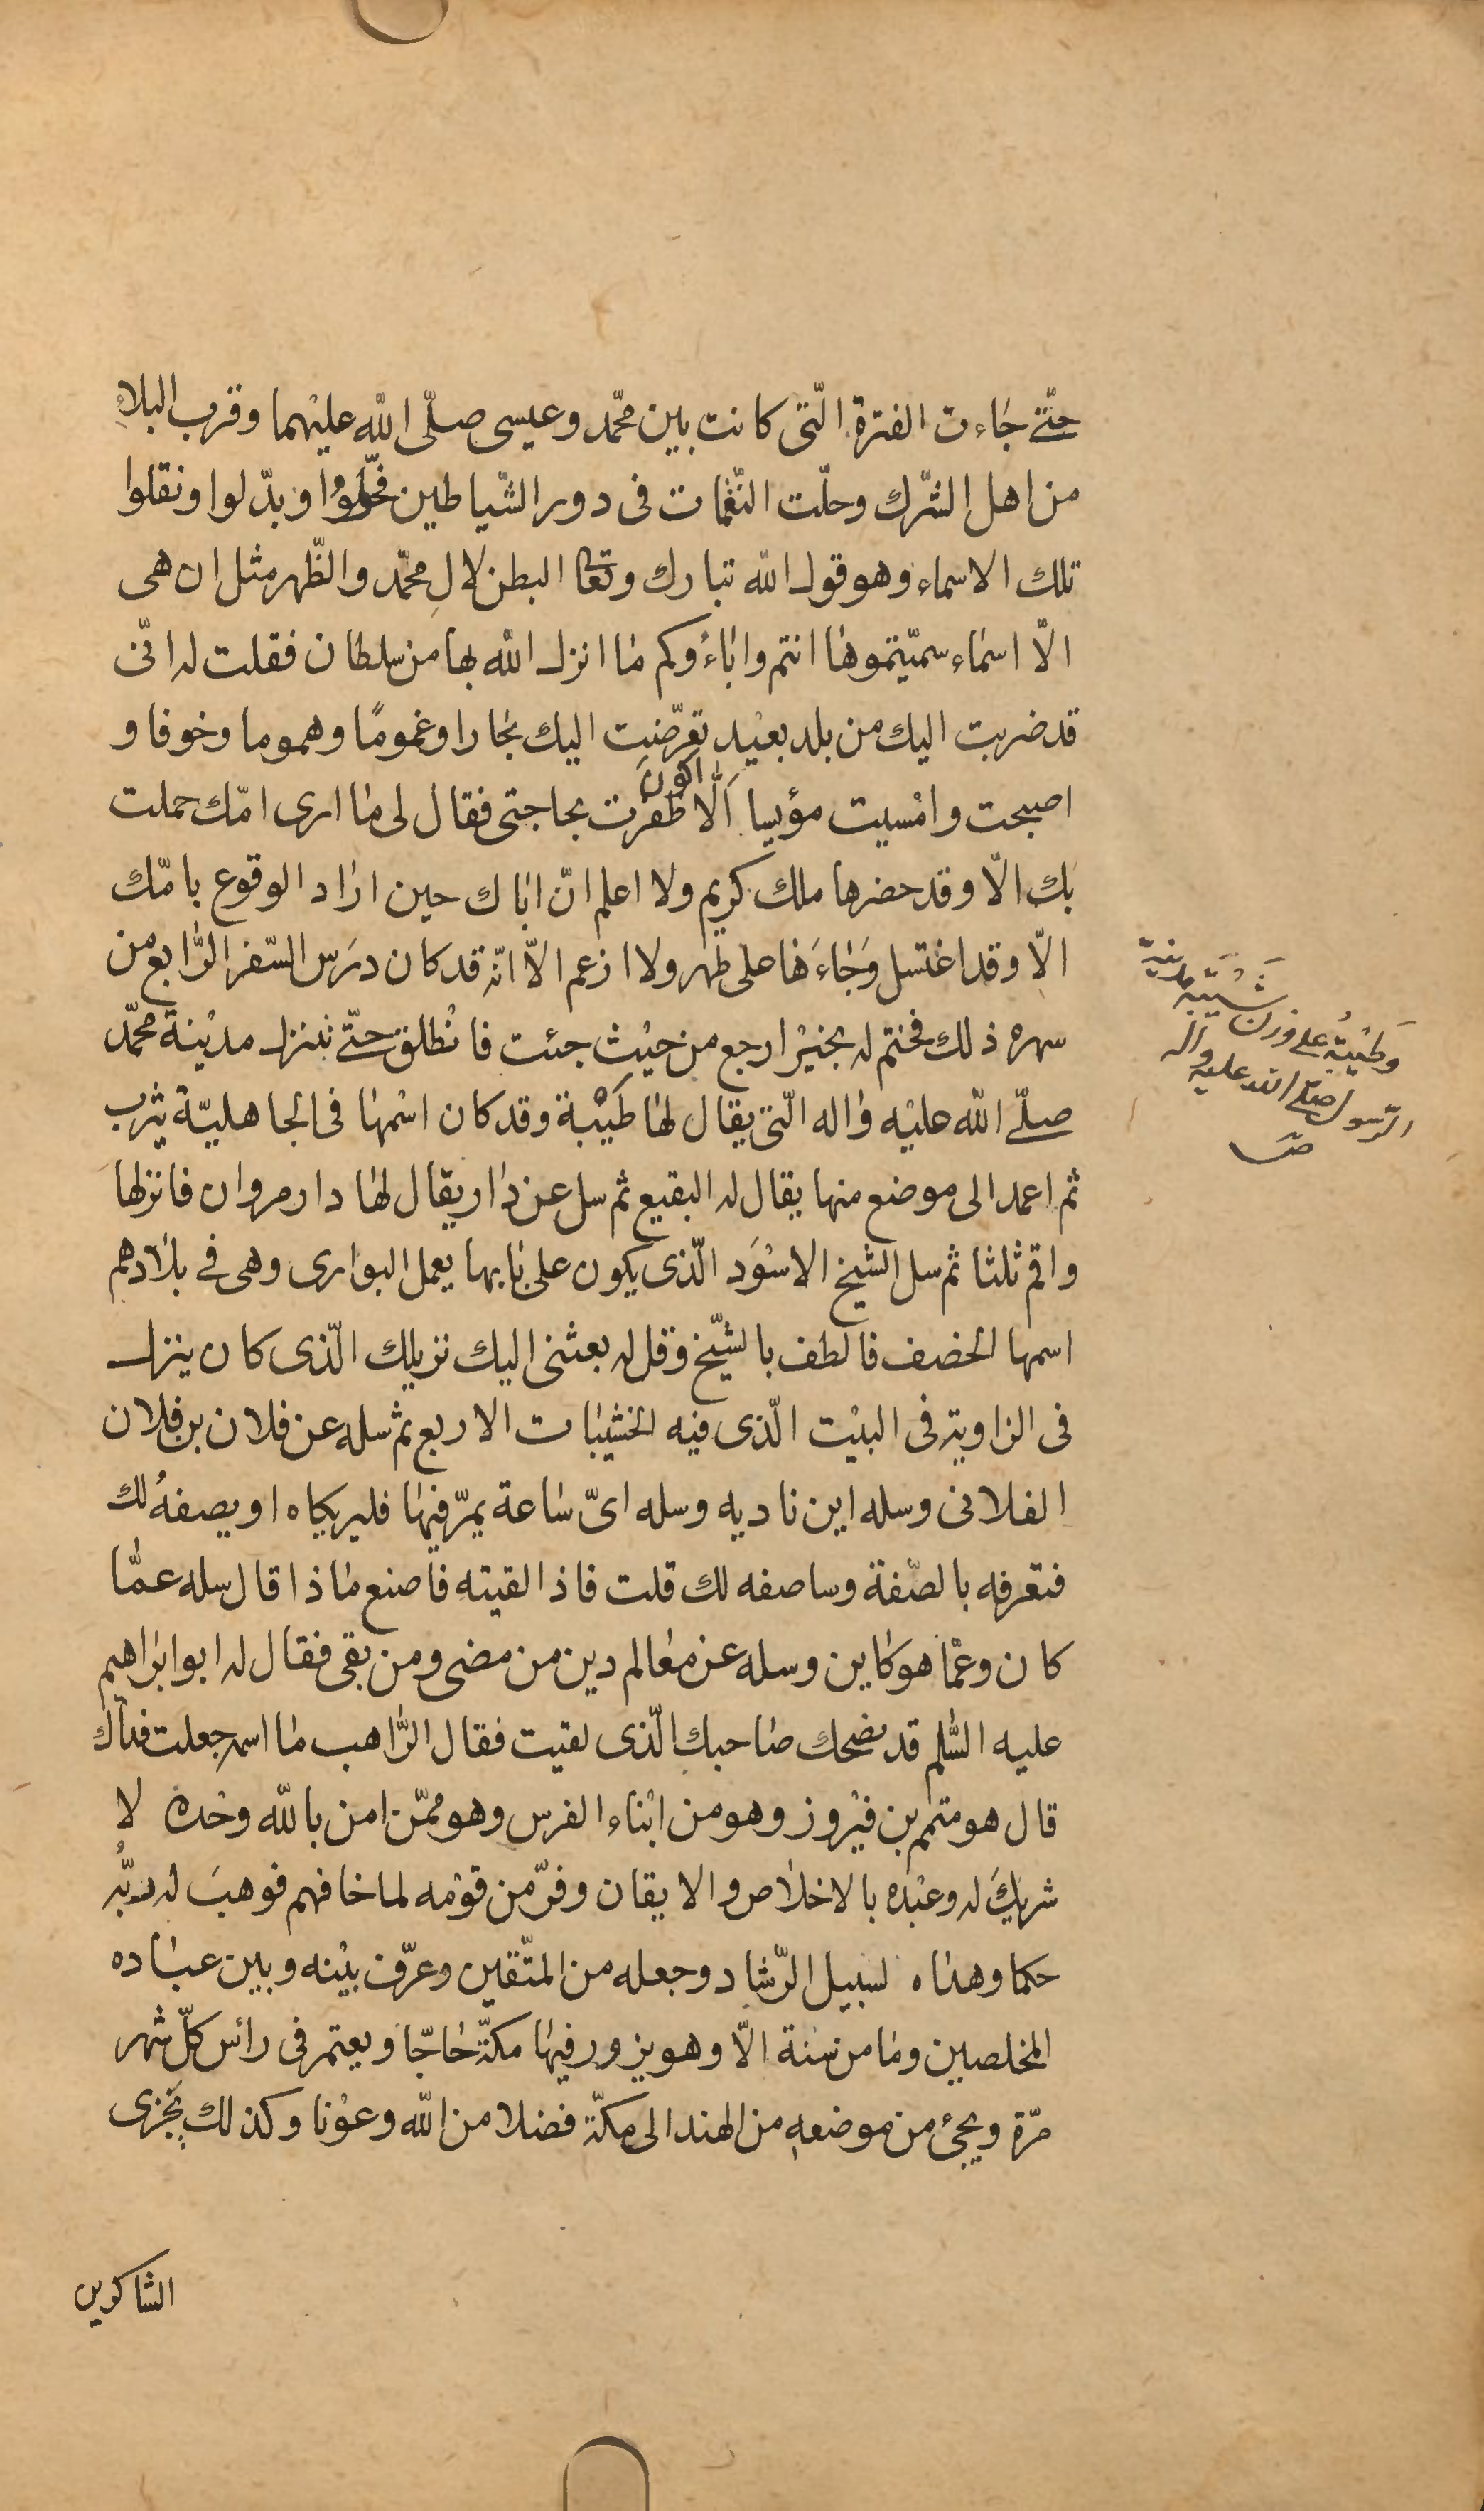 حتّى جاءت الفترة الّتى كانت بين محمّد وعيسى صلّى الله عليهما وقرب البلاء
من اهل الشّرك وحلّت النّقمات فى دور الشّياطين فحوّلوا وبدّلوا ونقلوا
تلك الاسماء وهو قول الله تبارك وتعا البطن لآلِ محمّد والظّهر مثل ان هى
الّا اسماء سمّيتموها انتم واباؤكم ما انزل الله بها من سلطان فقلت له انّى
قد ضربت اليك من بلد بعيد تعرّضت اليك بحارا وغمومًا وهموما وخوفا و
اصبحت وامسيت مؤيسا الّا اكون ظفرت بحاجتى فقال لى ما ارى امّك حملت
بك الّا وقد حضرها ملك كريم ولا اعلم انّ اباك حين اراد الوقوع بامّك
الّا وقد اغتسل وَجَاءَها على طهر ولا ازعم الّا انّه قد كان درَس السّفر الرّابع من
سهره ذلك فختم له بخير ارجع من حيث جئت فانطلق حتّى تنزل مدينة محمّد
صلّى الله عليه واله الّتى يقال لها طَيْبة وقد كان اسمها فى الجاهليّة يثرب
ثم اعمد الى موضع منها يقال له البقيع ثم سل عن دار يقال لها دار مروان فانزلها
واقم ثلثا ثم سل الشيخ الاسْوَد الّذى يكون على بابها يعمل البوارى وهى فى بلادهم
اسمها الخصف فالطف بالشّيخ وقل له بعثنى اليك نزيلك الّذى كان ينزل
فى الزاوية فى البيْت الّذى فيه الخشيبات الاربع ثم سله عن فلان بن فلان
الفلانى وسله اين ناديه وسله اىّ ساعة يمرّ فيها فليريكاه او يصفهُ لك
فتعرفه بالصّفة وساصفه لك قلت فاذا لقيته فاصنع ماذا قال سله عمّا
كان وعمّا هو كاين وسله عن معالم دين من مضى ومن بقى فقال له ابو ابراهيم
عليه السّلم قد نصحك صاحبك الّذى لقيت فقال الرّاهب ما اسمه جعلت فداك
قال هو متمم بن فيروز وهو من ابناء الفرس وهو ممّن امن بالله وحْده لا
شريكَ له وعبْده بالاخلاص والايقان وفرّ من قومه لما خافهم فوهبَ له ربُّه
حكما وهداه لسبيل الرّشاد وجعله من المتّقين وعرّف بيْنه وبين عباده
المخلصين وما من سنة الّا وهو يزور فيها مكّة حاجّا ويعتمر فى رأس كلّ شهر
مرّة ويجئ من موضعه من الهند الى مكّة فضلا من الله وعوْنا وكذلك يجزى
الشاكرين
وطَيْبَةُ على وزن شَيْبَةَ مدينة
الرّسول صلّى الله عليه واله